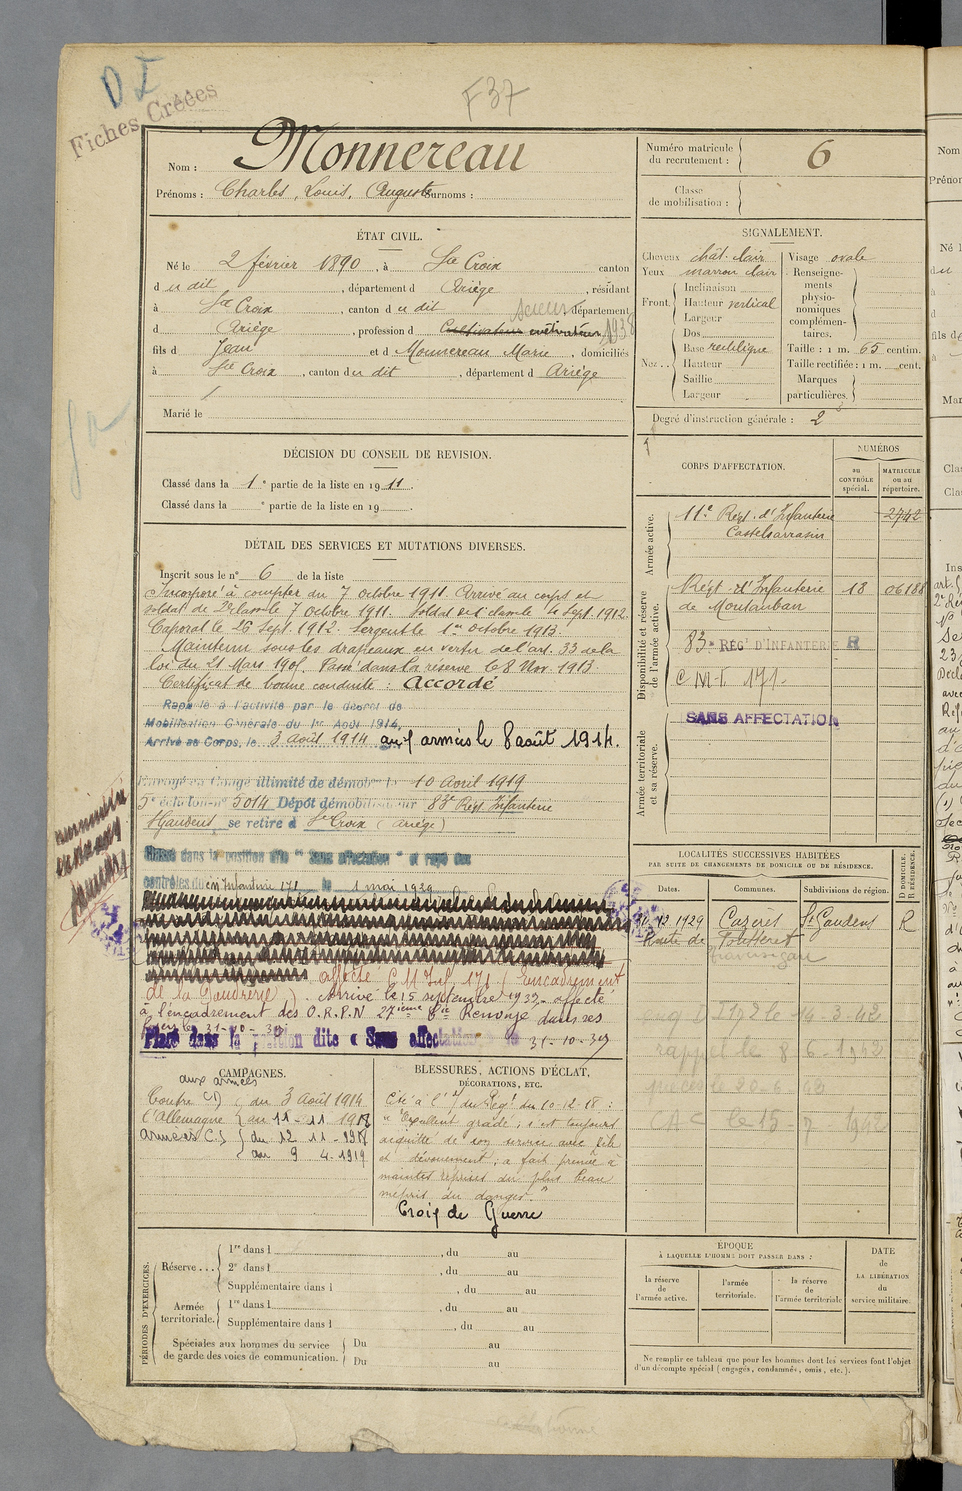 D I
Fiches Créées
F 37
Nom : Monnereau
Prénoms : Charles, Louis, Auguste Surnoms :
ÉTAT CIVIL.
Né le 2 février 1890, à Ste Croix canton
d u dit, département d Ariège, résidant
à Ste Croix, canton d u dit département
d Ariège, profession d Cultivateur cultivateur 1938
fils d Jean et d Monnereau Marie, domiciliés
à Ste Croix, canton du dit, département d Ariège
Marié le
DÉCISION DU CONSEIL DE REVISION.
Classé dans la 1e partie de la liste en 1911.
Classé dans la e partie de la liste en 19
DÉTAIL DES SERVICES ET MUTATIONS DIVERSES.
Inscrit sous le n° 6 de la liste
Incorporé à compter du 7 octobre 1911. Arrivé au corps et
soldat de 2e classe le 7 octobre 1911. Soldat de 1e classe le 4 Sept. 1912.
Caporal le 26 Sept. 1912. Sergent le 1er octobre 1913.
Maintenu sous les drapeaux en vertu de l'art. 33 de la
loi du 21 Mars 1905. Passé dans la réserve le 8 Nov. 1913.
Certificat de bonne conduite : Accordé
Rappelé à l'activité par le décret de
Mobilisation Générale du 1er Août 1914,
Arrivé au Corps, le 3 août 1914 aux armées le 8 août 1914.
Envoyé en Congé illimité de démobon le 10 avril 1919
5e échelon n° 5014 Dépôt démobilisateur 83e Régt Infanterie
St Gaudens, se retire à Ste Croix (Ariège)
Classé dans la position dite "Sans affectation" et rayé des
contrôles du en Infanterie 171 le 1 mai 1929
affecté C M Inf 171 (Encadrement
de la Poudrerie). Arrivé le 15 septembre 1939 affecté
à l'encadrement des O.R.P.N 27ième Cie Renvoyé dans ses
foyers le 31-10-39
Placé dans la position dite « Sans affectation » le 31-10-39
CAMPAGNES.
aux armées
Contre CD du 3 août 1914
l'Allemagne au 11-11 1918
armées C.S du 12 11-1918
au 9 4-1919
BLESSURES, ACTIONS D'ÉCLAT,
DÉCORATIONS, ETC.
Cité à l'O/ du Régt du 10-12-18 :
"Excellent gradé ; s'est toujours
acquitté de son service avec zèle
et dévouement, a fait preuve à
maintes reprises du plus beau
mépris du danger."
Croix de Guerre
PÉRIODES D'EXERCICES.
Réserve... 1re dans l , du au
2e dans l , du au
Supplémentaire dans l , du au
Armée territoriale. 1re dans l , du au
Supplémentaire dans l , du au
Spéciales aux hommes du service
de garde des voies de communication. Du au
Du au
Numéro matricule
du recrutement : 6
Classe
de mobilisation :
SIGNALEMENT.
Cheveux chât. clair Visage ovale
Yeux marron clair Renseigne-
ments
physio-
nomiques
complémen-
taires.
Front. Inclinaison
Hauteur vertical
Largeur
Nez.. Dos
Base rectiligne
Hauteur
Saillie
Largeur
Taille : 1 m. 65 centim.
Taille rectifiée : 1 m. cent.
Marques
particulières.
Degré d'instruction générale : 2
CORPS D'AFFECTATION.
NUMÉROS
au CONTRÔLE spécial.
MATRICULE ou au répertoire.
Armée active.
11e Régt. d'Infanterie 2742
Castelsarrasin
Disponibilité et réserve
de l'armée active.
Régt d'Infanterie 18 06188
de Montauban
83e RÉGt D'INFANTERIE R
C M I. 171.
SANS AFFECTATION
Armée territoriale
et sa réserve.
LOCALITÉS SUCCESSIVES HABITÉES
PAR SUITE DE CHANGEMENTS DE DOMICILE OU DE RÉSIDENCE.
Dates. Communes. Subdivisions de région.
D DOMICILE.
R RÉSIDENCE.
12 1929 Cazères St Gaudens R
Route de
le 14-3-42
rappel le 8-6-1942
le 20-6-42
CAC le 15-7 1942
ÉPOQUE
À LAQUELLE L'HOMME DOIT PASSER DANS :
la réserve
de
l'armée active.
l'armée
territoriale.
la réserve
de
l'armée territoriale
DATE
de
LA LIBÉRATION
du
service militaire.
Ne remplir ce tableau que pour les hommes dont les services font l'objet
d'un décompte spécial (engagés, condamnés, omis, etc.).